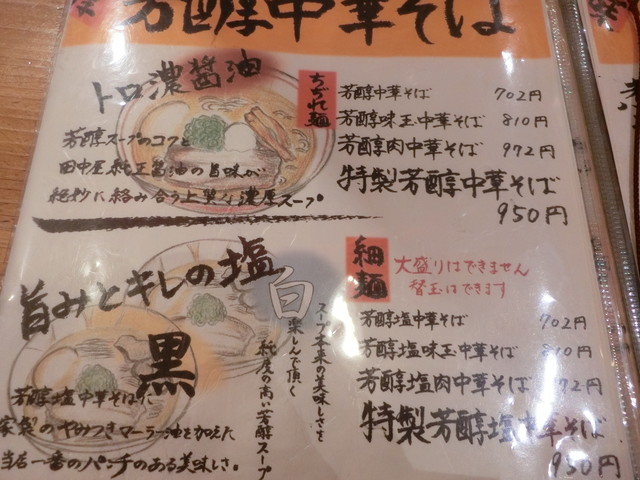 芳醇中華そば
トロ濃醤油
芳醇スープのコクと
田中屋純正醤油の旨味が
絶妙に絡み合う上質な濃厚スープ
ちぢれ麺
芳醇中華そば 702円
芳醇味玉中華そば 810円
芳醇肉中華そば 972円
特製芳醇中華そば
950円
旨みとキレの塩
白
スープ本来の美味しさを
楽しんで頂く
純度の高い芳醇スープ
黒
芳醇塩中華そばに
家製のやみつきマーラー油を加えた
当店一番のパンチのある美味しさ。
細麺
大盛りはできません
替玉はできます
芳醇塩中華そば 702円
芳醇塩味玉中華そば 810円
芳醇塩肉中華そば 972円
特製芳醇塩中華そば
950円